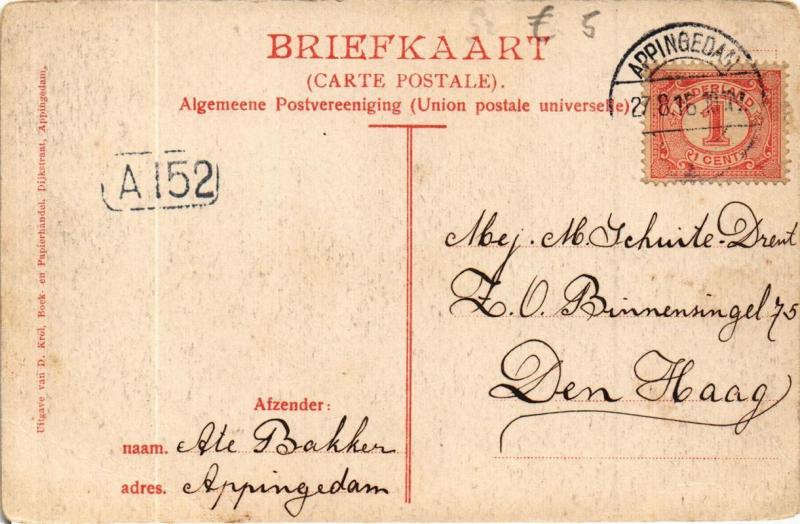 € 5
BRIEFKAART
(CARTE POSTALE).
Algemeene Postvereeniging (Union postale universelle)
APPINGEDAM
27.8.15
NEDERLAND
1
1 CENT
A 152
Mej. M. Schuite-Drent
Z. O. Binnensingel 75
Den Haag
Afzender:
naam. Ate Bakker
adres. Appingedam
Uitgave van D. Król, Boek- en Papierhandel, Dijkstraat, Appingedam.